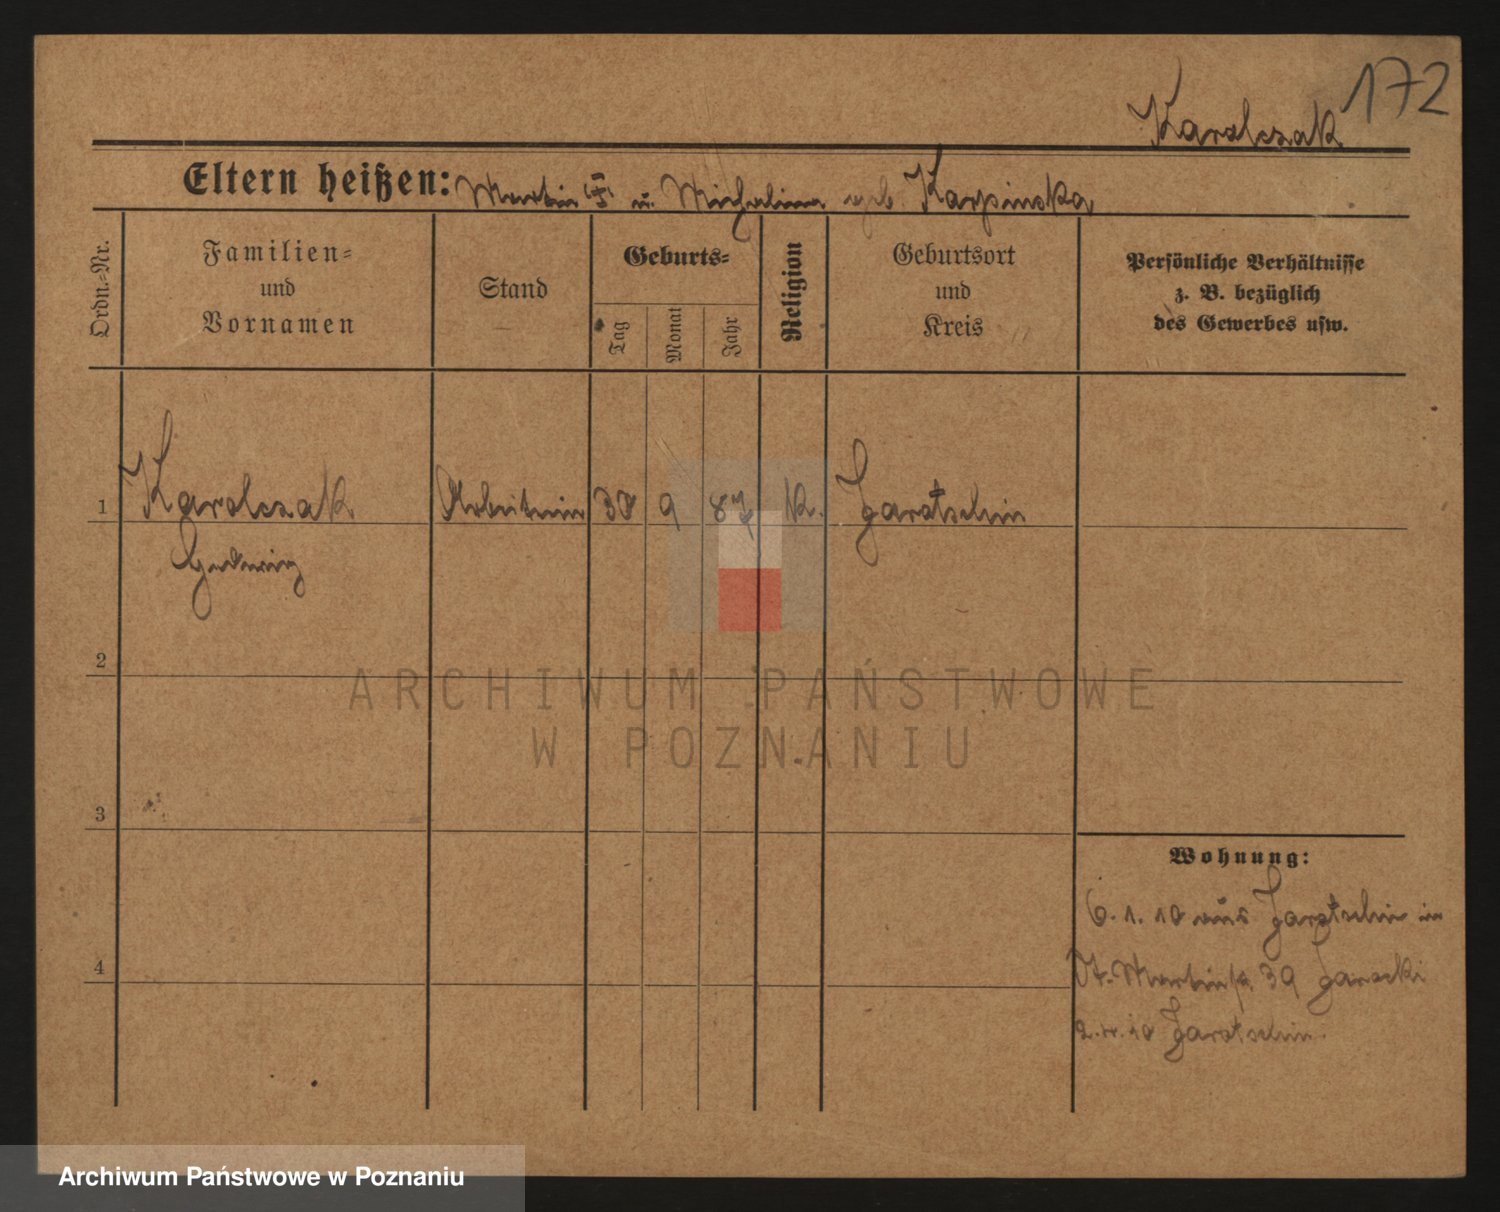 172
Karolczak
Eltern heißen: Martin (†) u. Michalina geb. Karpinska
Ordn.-Nr.
Familien-
und
Vornamen
Stand
Geburts-
Tag
Monat
Jahr
Religion
Geburtsort
und
Kreis
Persönliche Verhältnisse
z. B. bezüglich
des Gewerbes usw.
1
Karolczak Arbeiterin 30 9 87 k. Jarotschin
Hedwig
2
ARCHIWUM PAŃSTWOWE
W POZNANIU
3
Wohnung:
6. 1. 10 aus Jarotschin in
St. Martinstr. 39 Jarecki
4
10 Jarotschin.
Archiwum Państwowe w Poznaniu